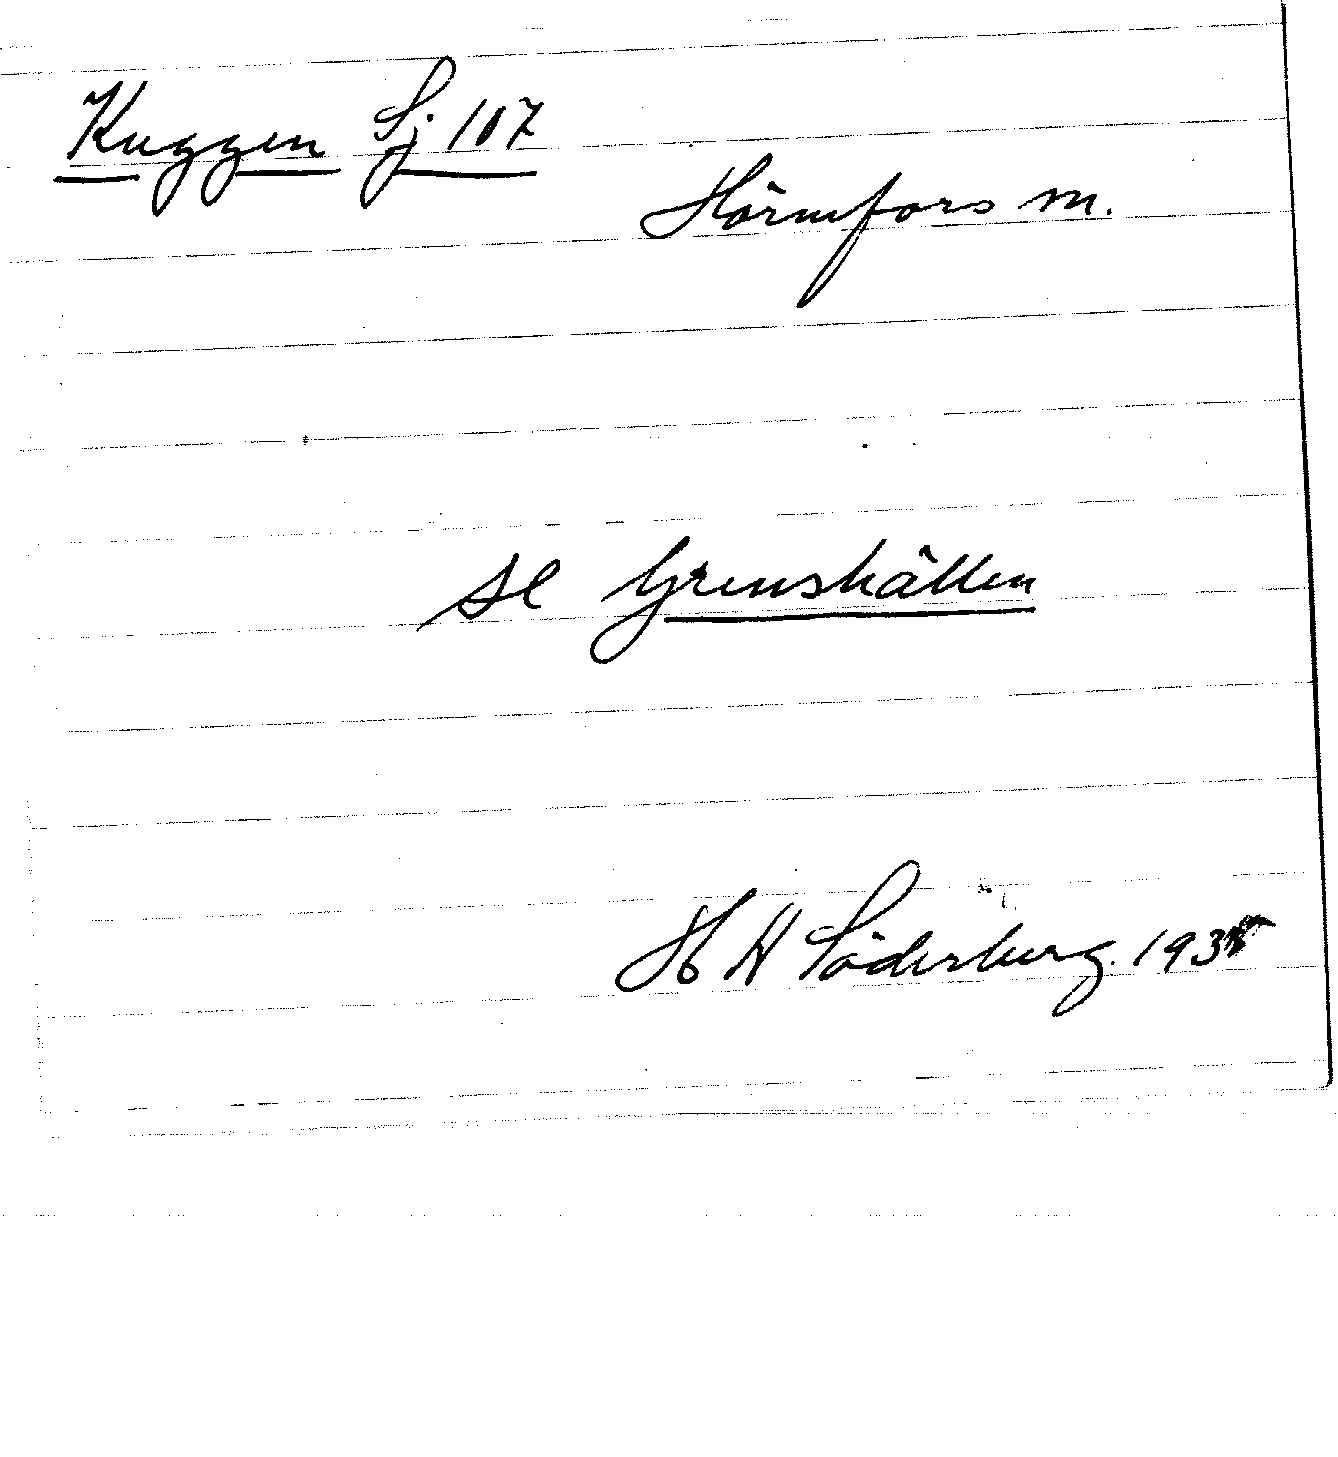 Kuggen Sj 107
Hörnefors m.
se Grenshällen
H H Söderberg. 1935